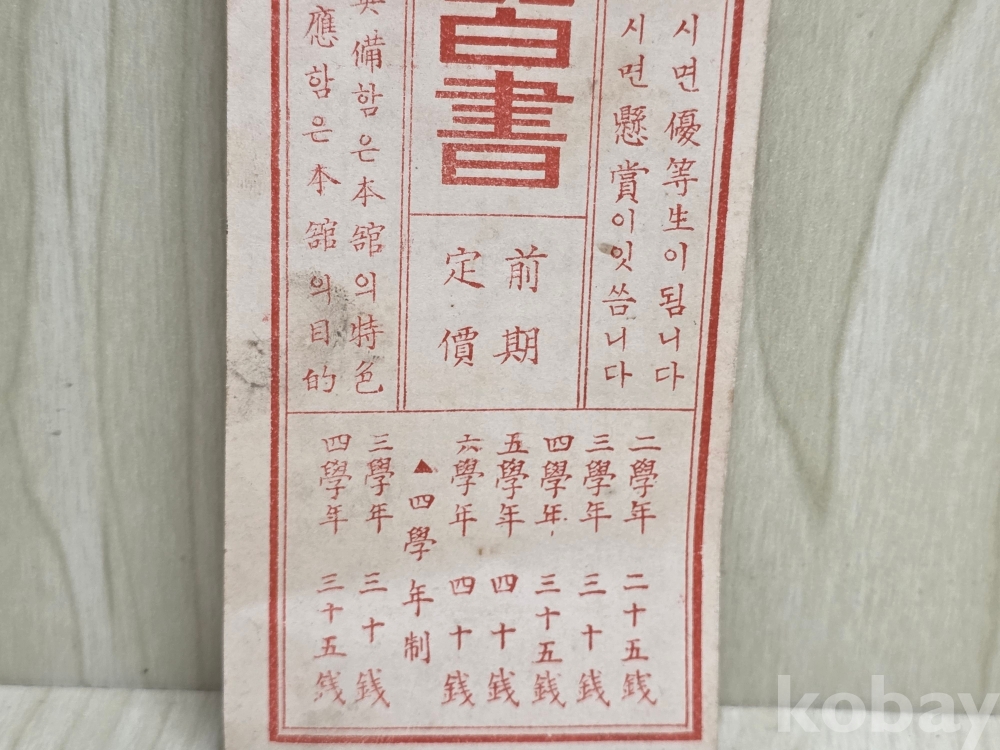 시면優等生이됨니다
시면懸賞이잇씀니다
白書
前期
定價
二學年 二十五銭
三學年 三十銭
四學年 三十五銭
五學年 四十銭
六學年 四十銭
▲四學年制
三學年 三十銭
四學年 三十五銭
備함은本舘의特色
應함은本舘의目的
kobay